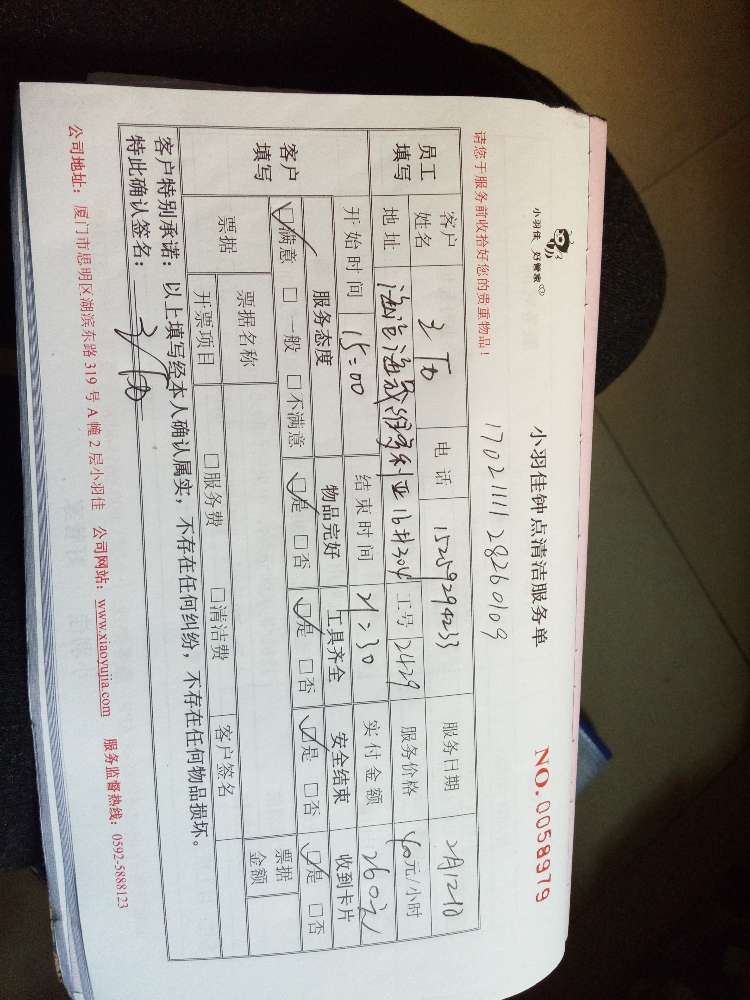 小羽佳 好管家
小羽佳钟点清洁服务单
NO.0058979
170211112826 0109
请您于服务前收拾好您的贵重物品!
员工填写 客户姓名 电话 15259294233 服务日期 2月12日
地址 海沧海岸维多利亚16#304 工号 2429 服务价格 40元/小时
客户填写 开始时间 15:00 结束时间 21:30 实付金额 260元
服务态度 物品完好 工具齐全 安全结束 收到卡片
☑满意 □一般 □不满意 ☑是 □否 ☑是 □否 ☑是 □否 ☑是 □否
票据 票据名称 客户签名 票据金额
开票项目 □服务费 □清洁费
客户特别承诺:以上填写经本人确认属实,不存在任何纠纷,不存在任何物品损坏。
特此确认签名:
公司地址:厦门市思明区湖滨东路319号A幢2层小羽佳 公司网站:www.xiaoyujia.com 服务监督热线:0592-5888123